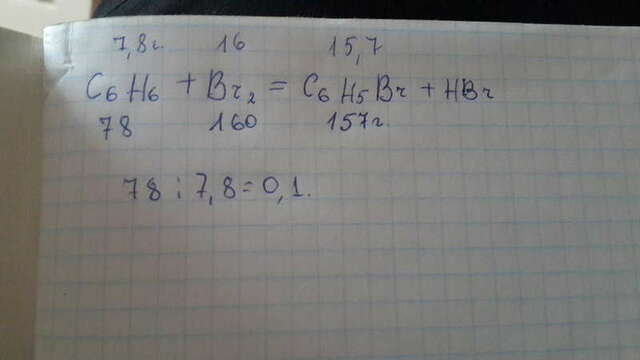 7,8г. 16 15,7
C₆H₆ + Br₂ = C₆H₅Br + HBr
78 160 157г.
78 : 7,8 = 0,1.